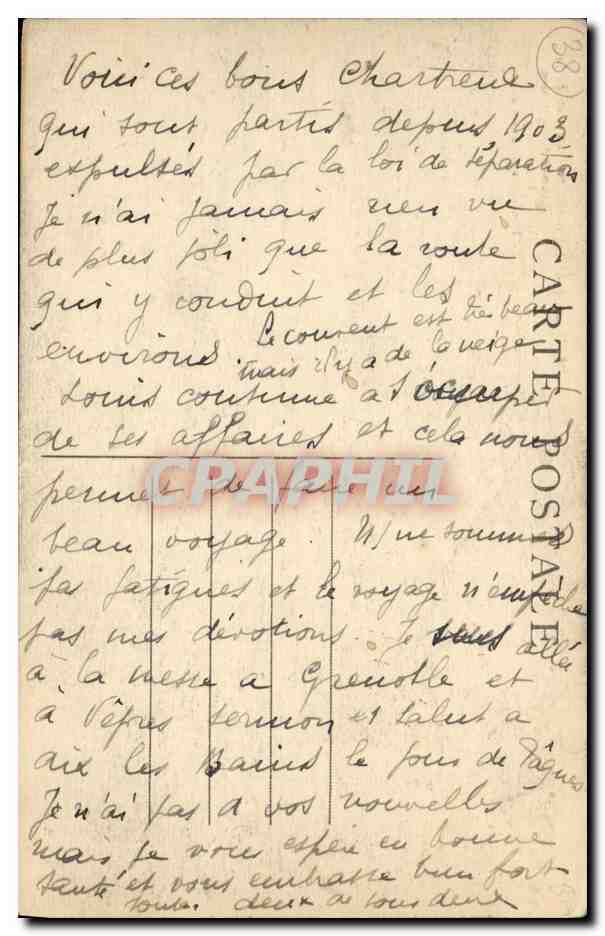 38
Voici ces bons Chartreux
qui sont partis depuis 1903
expulsés par la loi de séparation
Je n'ai jamais rien vu
de plus joli que la route
qui y conduit et les
environs. Le couvent est très beau
mais il y a de la neige
Louis continue à s'occuper
de ses affaires et cela nous
permet de faire un
beau voyage. N/ ne sommes
pas fatigués et le voyage n'empêche
pas mes dévotions. Je suis allée
à la messe a Grenoble et
à Vêpres sermon et salut a
aix les Bains le jour de Pâques
Je n'ai pas d vos nouvelles
mais je vous espère en bonne
santé et vous embrasse bien fort
toutes deux de tous deux
CARTE POSTALE
CPAPHIL